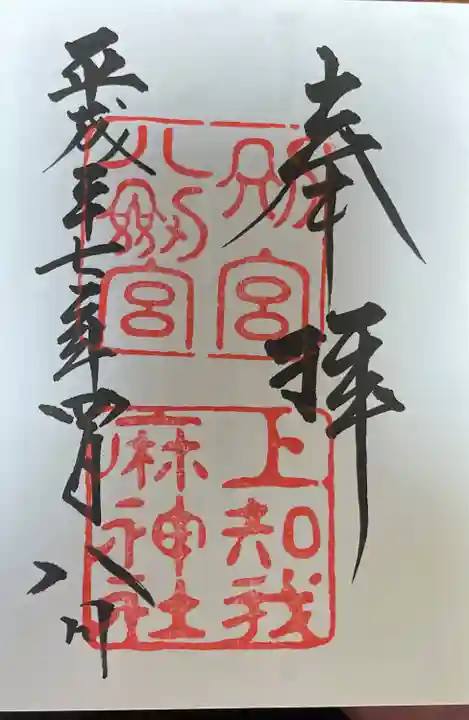 奉拝
別宮
八剣宮
上知我
麻神社
平成二十七年四月八日